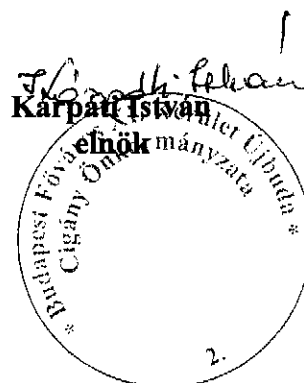 Kárpáti István
elnök
* Budapest Főváros XI. kerület Újbuda *
Cigány Önkormányzata
2.